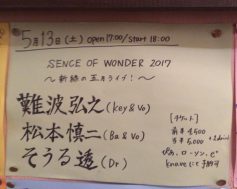 5月13日(土) open 17:00/start 18:00
SENCE OF WONDER 2017
～新緑の五月ライブ！～
難波弘之(Key&Vo)
松本慎二(Ba&Vo)
そうる透(Dr)
[チケット]
前 4,500
当 5,000
ぴあ、ローソン、e+
knaveにて予約可